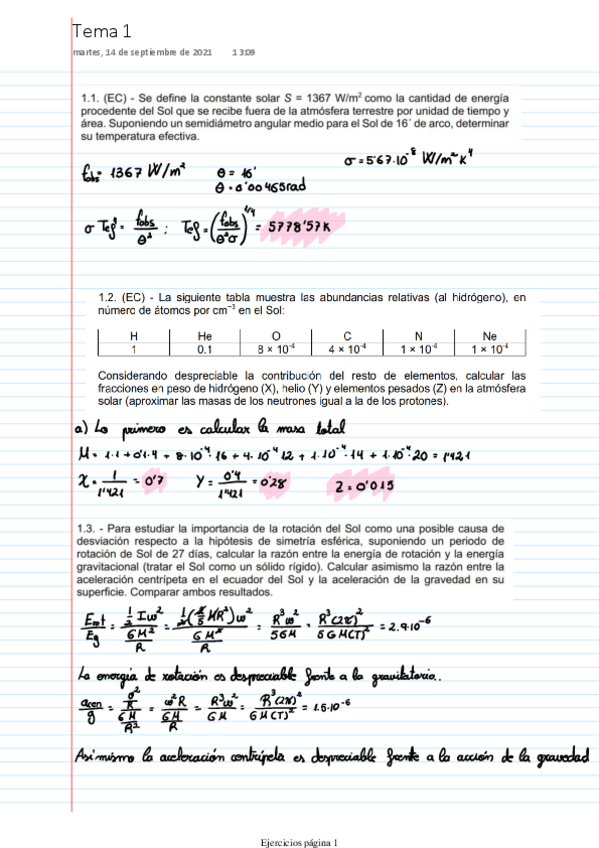 Tema 1
martes, 14 de septiembre de 2021 13:09
1.1. (EC) - Se define la constante solar S = 1367 W/m² como la cantidad de energía
procedente del Sol que se recibe fuera de la atmósfera terrestre por unidad de tiempo y
área. Suponiendo un semidiámetro angular medio para el Sol de 16´ de arco, determinar
su temperatura efectiva.
σ = 5'67·10⁻⁸ W/m²K⁴
fobs: 1367 W/m² θ = 16'
θ = 0'00465rad
σ Tef⁴ = fobs/θ² ; Tef = (fobs/θ²σ)^1/4 = 5778'57K
1.2. (EC) - La siguiente tabla muestra las abundancias relativas (al hidrógeno), en
número de átomos por cm⁻³ en el Sol:
H He O C N Ne
1 0.1 8 × 10⁻⁴ 4 × 10⁻⁴ 1 × 10⁻⁴ 1 × 10⁻⁴
Considerando despreciable la contribución del resto de elementos, calcular las
fracciones en peso de hidrógeno (X), helio (Y) y elementos pesados (Z) en la atmósfera
solar (aproximar las masas de los neutrones igual a la de los protones).
a) Lo primero es calcular la masa total
M = 1·1 + 0'1·4 + 8·10⁻⁴·16 + 4·10⁻⁴·12 + 1·10⁻⁴·14 + 1·10⁻⁴·20 = 1'421
X = 1/1'421 = 0'7 Y = 0'4/1'421 = 0'28 Z = 0'015
1.3. - Para estudiar la importancia de la rotación del Sol como una posible causa de
desviación respecto a la hipótesis de simetría esférica, suponiendo un periodo de
rotación de Sol de 27 días, calcular la razón entre la energía de rotación y la energía
gravitacional (tratar el Sol como un sólido rígido). Calcular asimismo la razón entre la
aceleración centrípeta en el ecuador del Sol y la aceleración de la gravedad en su
superficie. Comparar ambos resultados.
Erot/Eg = (½ Iω²)/(GM²/R) = (½(⅖MR²)ω²)/(GM²/R) = R³ω²/5GM = R³(2π)²/5GM(T)² = 2.9·10⁻⁶
La energía de rotación es despreciable frente a la gravitatoria.
acen/g = (v²/R)/(GM/R²) = ω²R/(GM/R) = R³ω²/GM = R³(2π)²/GM(T)² = 1.5·10⁻⁶
Asimismo la aceleración centrípeta es despreciable frente a la acción de la gravedad
Ejercicios página 1